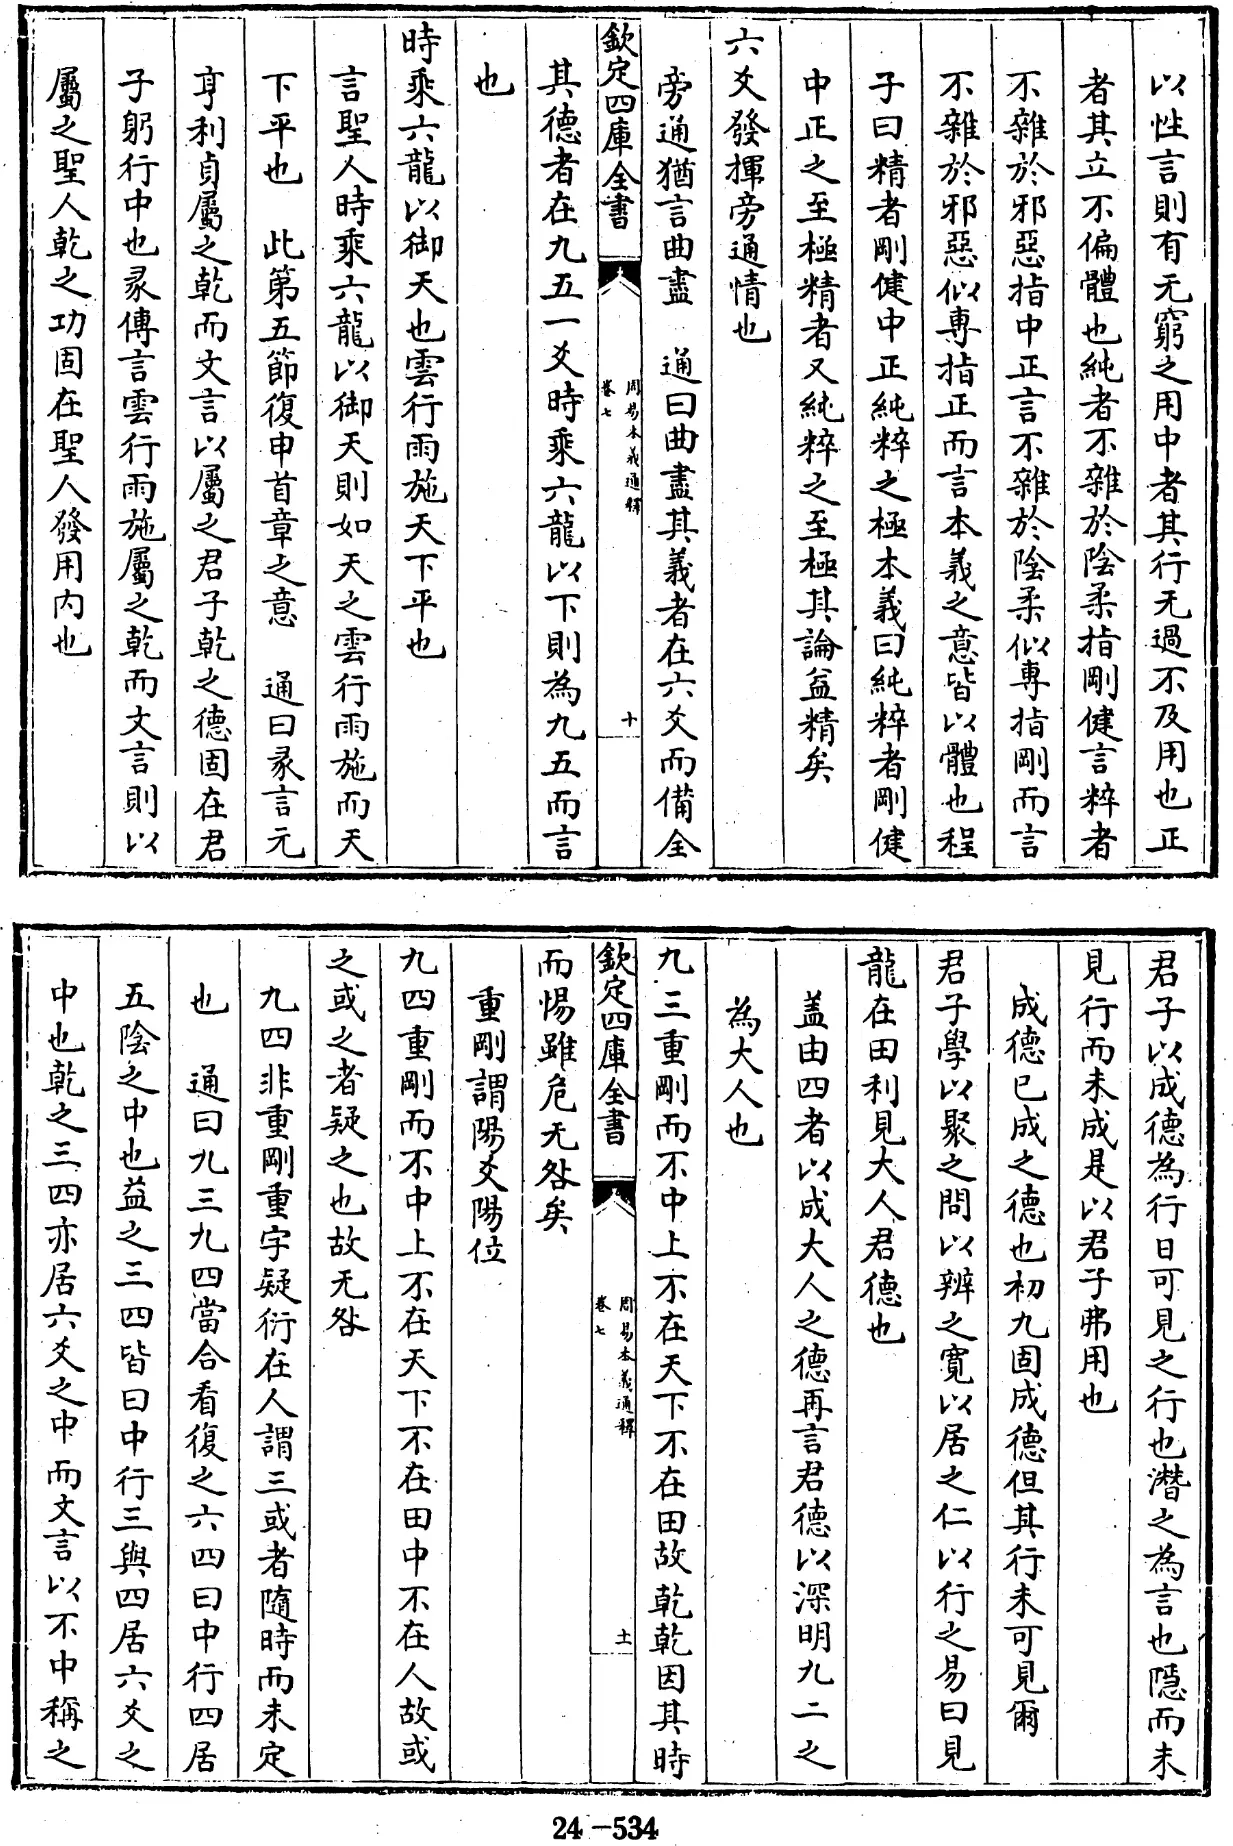 以性言則有无窮之用中者其行无過不及用也正
者其立不偏體也純者不雜於陰柔指剛健言粹者
不雜於邪惡指中正言不雜於陰柔似專指剛而言
不雜於邪惡似專指正而言本義之意皆以體也程
子曰精者剛健中正純粹之極本義曰純粹者剛健
中正之至極精者又純粹之至極其論益精矣
六爻發揮旁通情也
旁通猶言曲盡　通曰曲盡其義者在六爻而備全
欽定四庫全書
周易本義通釋
卷七
十
其德者在九五一爻時乘六龍以下則為九五而言
也
時乘六龍以御天也雲行雨施天下平也
言聖人時乘六龍以御天則如天之雲行雨施而天
下平也　此第五節復申首章之意　通曰彖言元
亨利貞屬之乾而文言以屬之君子乾之德固在君
子躬行中也彖傳言雲行雨施屬之乾而文言則以
屬之聖人乾之功固在聖人發用内也
君子以成德為行日可見之行也潛之為言也隱而未
見行而未成是以君子弗用也
成德已成之德也初九固成德但其行未可見爾
君子學以聚之問以辨之寬以居之仁以行之易曰見
龍在田利見大人君德也
盖由四者以成大人之德再言君德以深明九二之
為大人也
九三重剛而不中上不在天下不在田故乾乾因其時
欽定四庫全書
周易本義通釋
卷七
十一
而惕雖危无咎矣
重剛謂陽爻陽位
九四重剛而不中上不在天下不在田中不在人故或
之或之者疑之也故无咎
九四非重剛重字疑衍在人謂三或者隨時而未定
也　通曰九三九四當合看復之六四曰中行四居
五陰之中也益之三四皆曰中行三與四居六爻之
中也乾之三四亦居六爻之中而文言以不中稱之
24-534